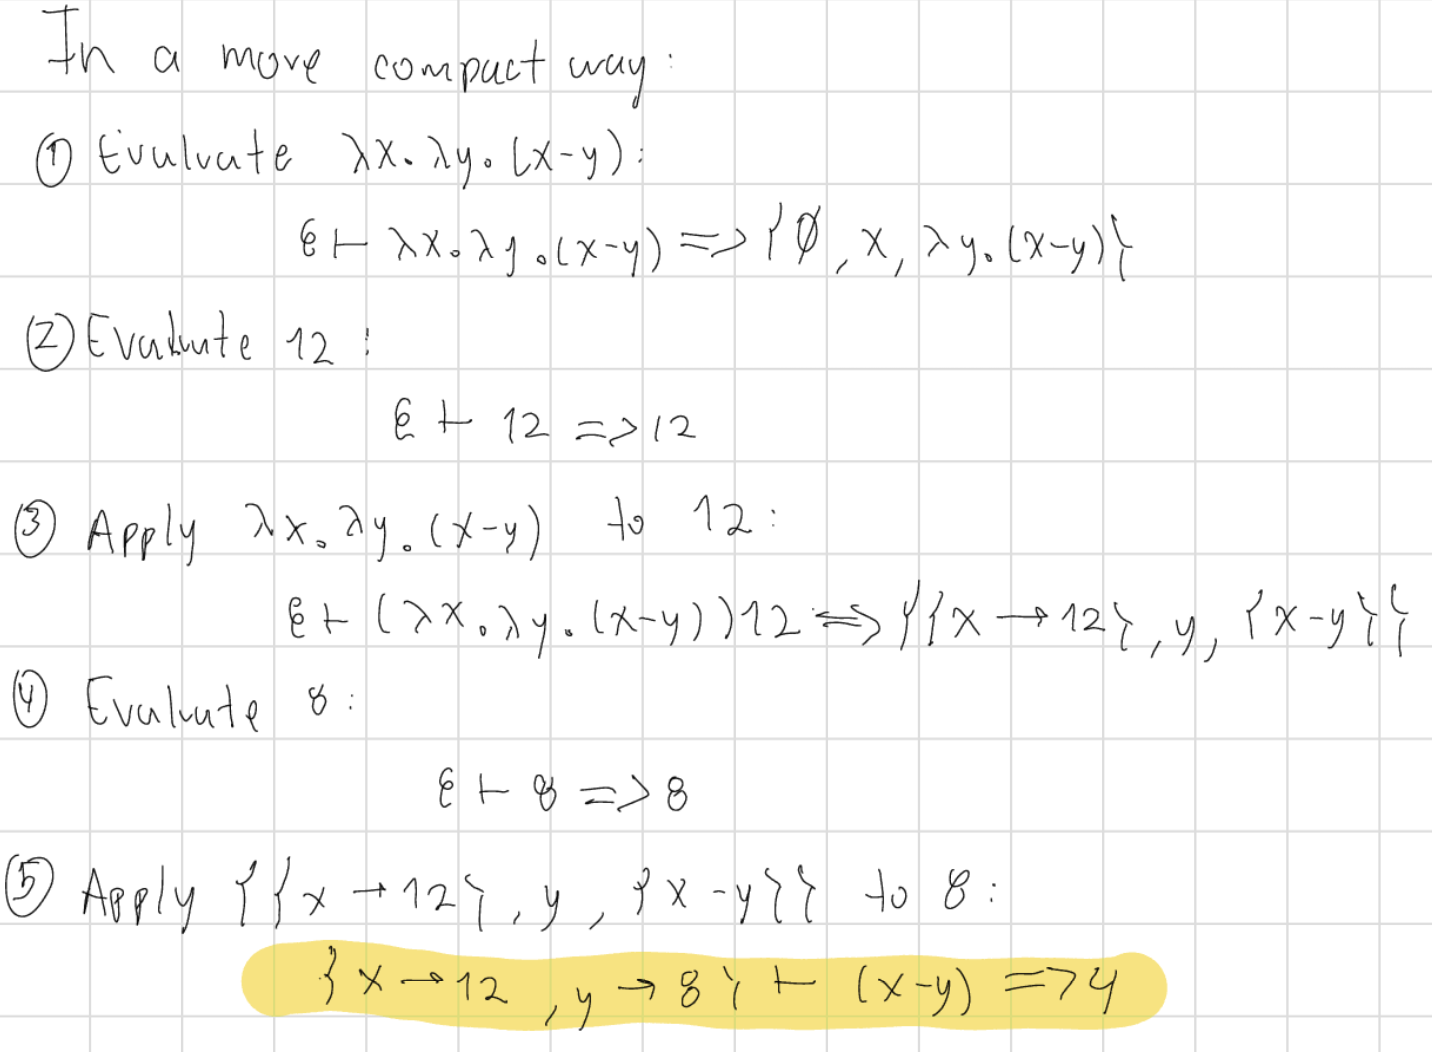 In a more compact way:
① Evaluate λx.λy.(x-y):
ε ⊢ λx.λy.(x-y) => {∅, x, λy.(x-y)}
② Evaluate 12:
ε ⊢ 12 => 12
③ Apply λx.λy.(x-y) to 12:
ε ⊢ (λx.λy.(x-y))12 => {{x → 12}, y, {x-y}}
④ Evaluate 8:
ε ⊢ 8 => 8
⑤ Apply {{x → 12}, y, {x-y}} to 8:
{x → 12, y → 8} ⊢ (x-y) => 4